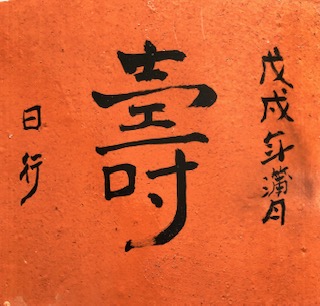 戊戌年蒲月
壽
日行